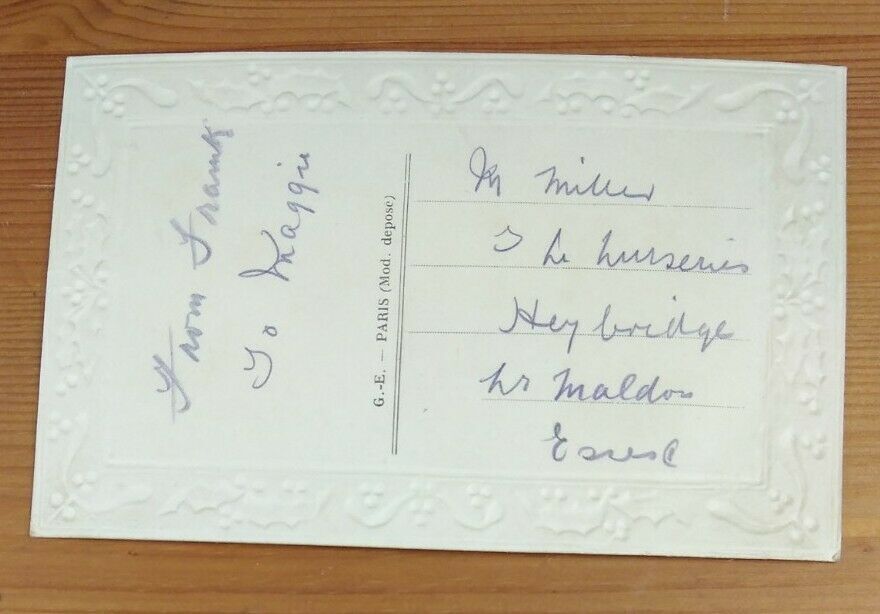 From Frank
To Maggie
G.-E. — PARIS (Mod. depose)
M Miller
The Nurseries
Heybridge
Nr Maldon
Essex